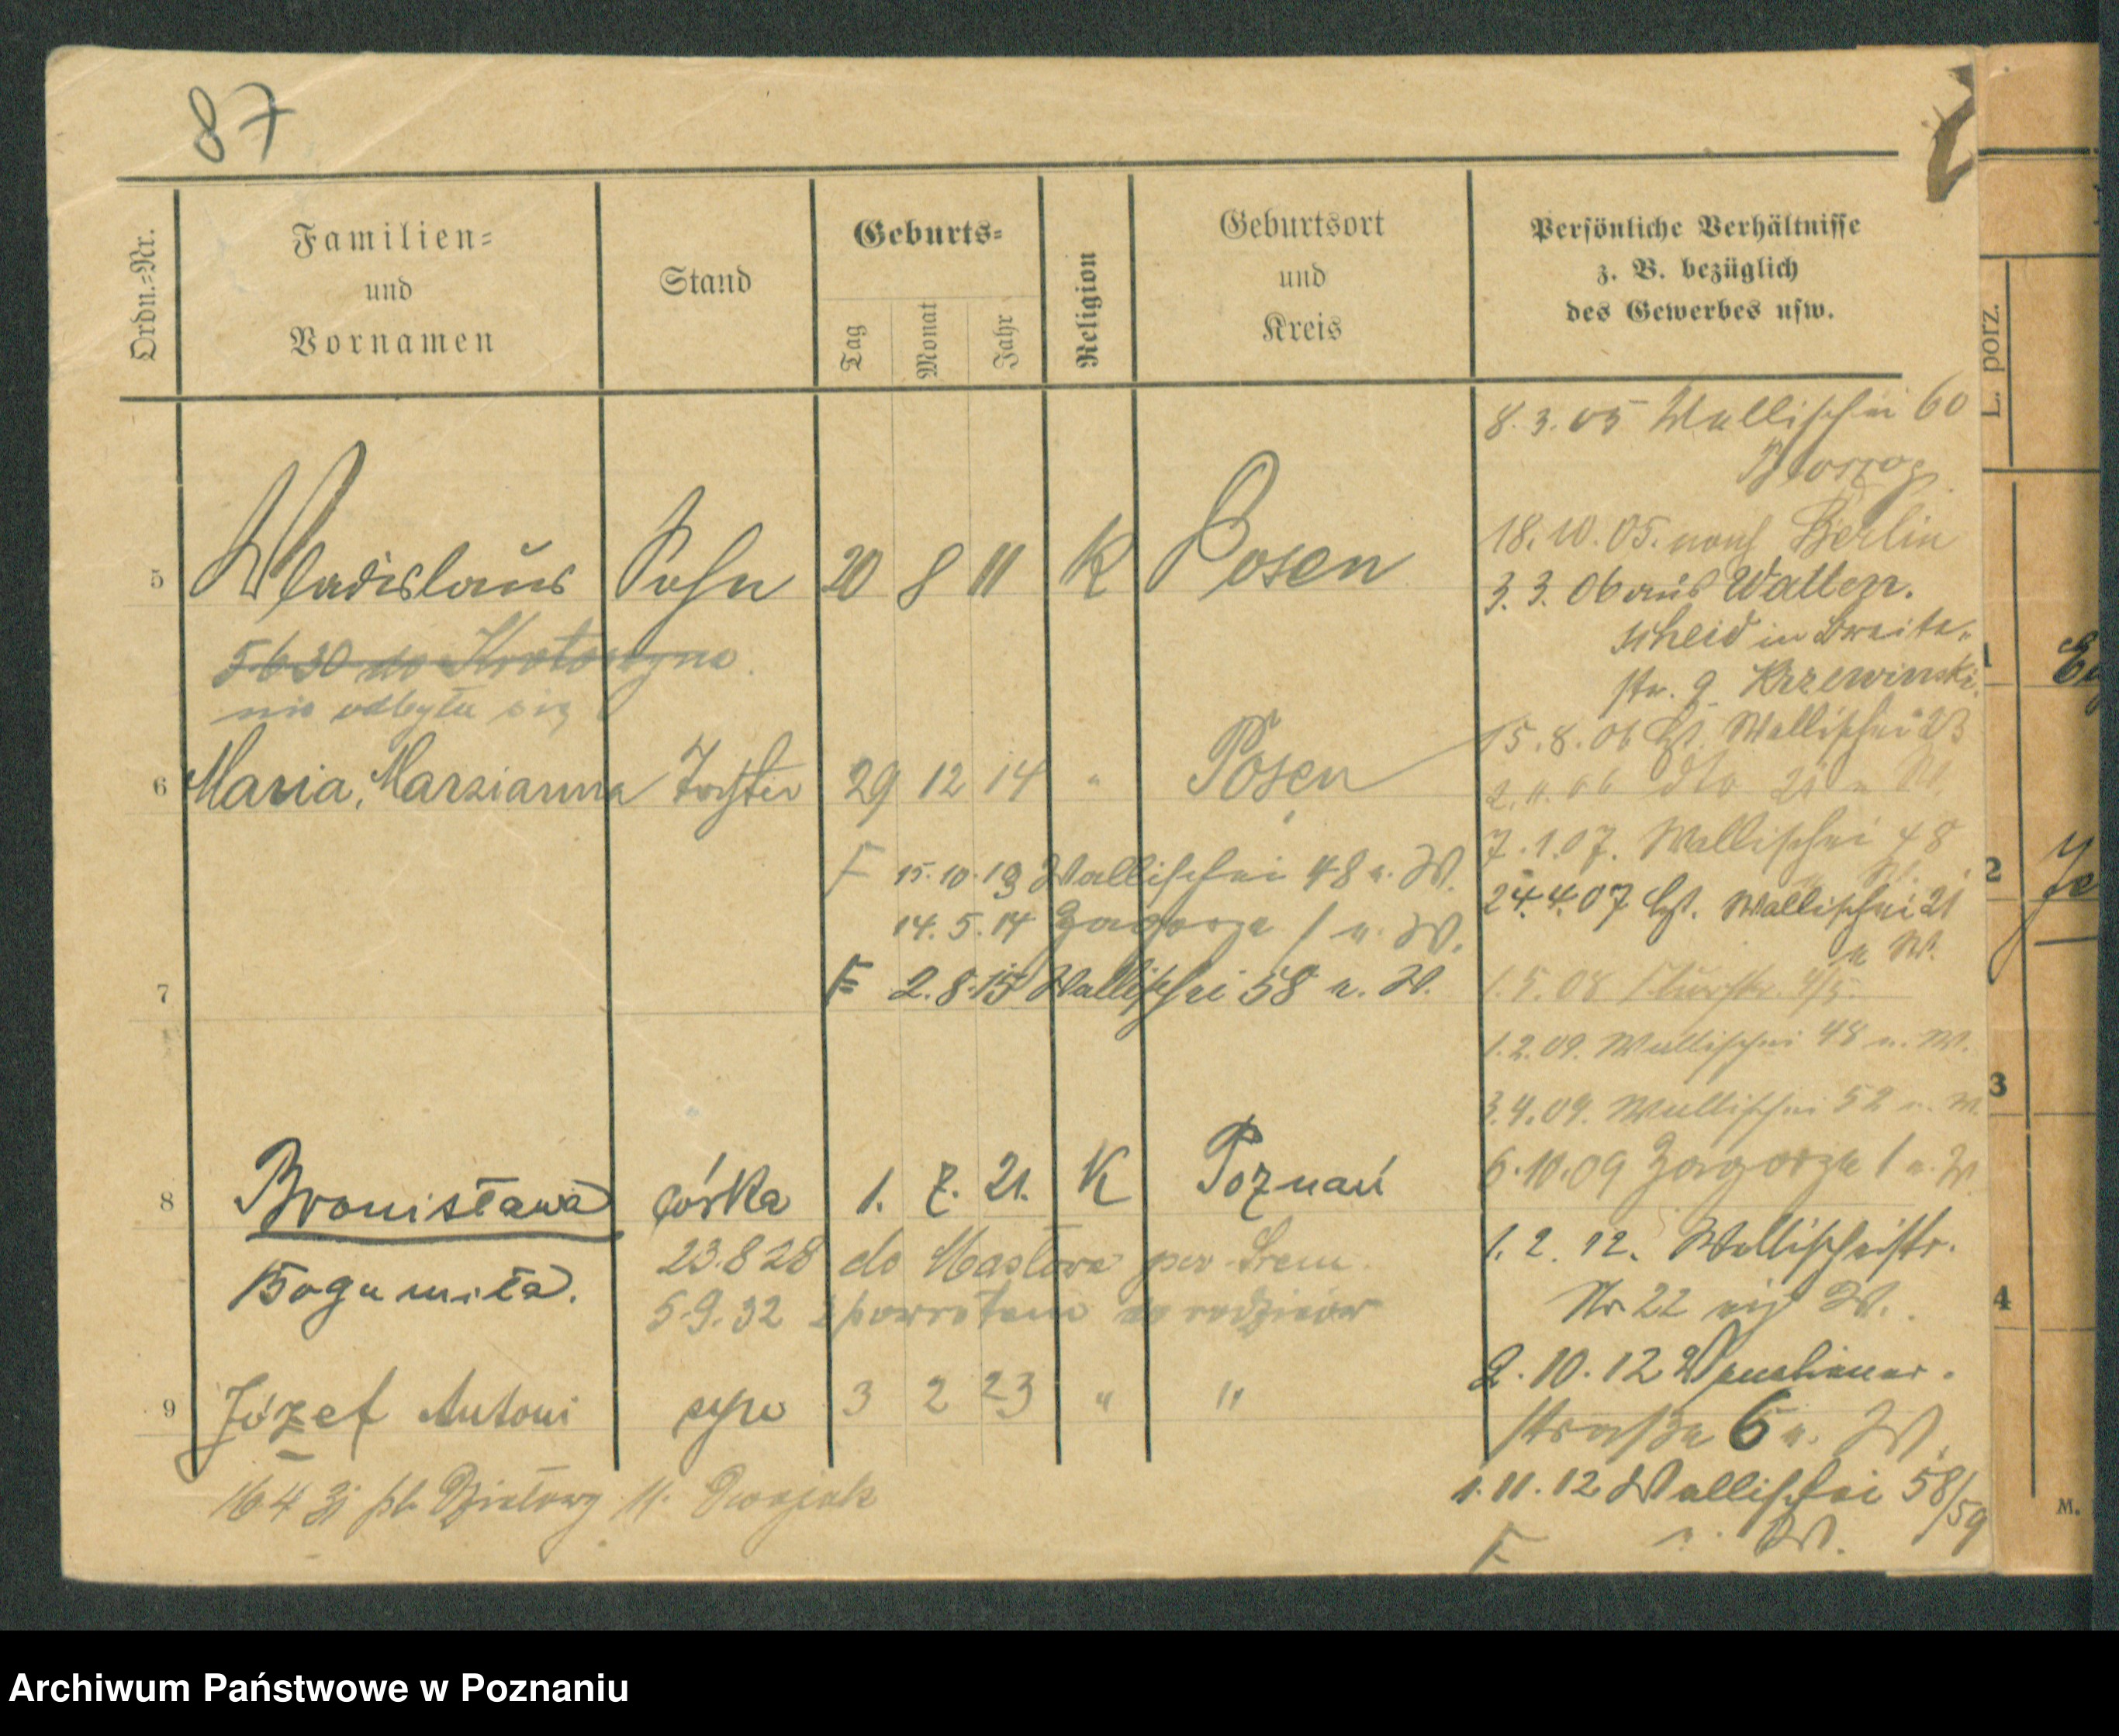 87
Ordn.=Nr.
Familien=
und
Vornamen
Stand
Geburts=
Tag
Monat
Jahr
Religion
Geburtsort
und
Kreis
Persönliche Verhältnisse
z. B. bezüglich
des Gewerbes usw.
8.3.05 Wallischei 60
18.10.05. nach Berlin
3.3.06 aus Watten.
scheid in Breite„
str. 9 Krzewinski.
5 Wladislaus Sohn 20 8 11 K Posen
5 6 30 do Krotoszyna.
nie odbyła się
15.8.06 Wallischei 23
6 Maria, Marzianna Tochter 29 12 14 " Posen
2.11.06 dto 21 u W.
7.1.07. Wallischei 48
F 15.10.13 Wallischei 48 u. W.
24.4.07 Wallischei 21
u W.
14.5.14 Zagorze 1 u. W.
7 F 2.8.15 Wallischei 58 u. W.
1.5.08 4/5.
1.2.09. Wallischei 48 u. W.
3.4.09. Wallischei 52 u. W.
6.10.09 Zagorze 1 u. W
8 Bronisława córka 1. 7. 21. K Poznań
Bogumiła.
23.8 28 do
5.9.32 z powrotem do rodziców
1.2.12. Wallischeistr.
Nr 22 W.
2.10.12
straße 6 u. W.
9 Józef Antoni syn 3 2 23 " "
16 4 31 pl. Działowy 11.
1.11.12 Wallischei 58/59
F u. W.
L. porz.
1
2
3
4
M.
Archiwum Państwowe w Poznaniu